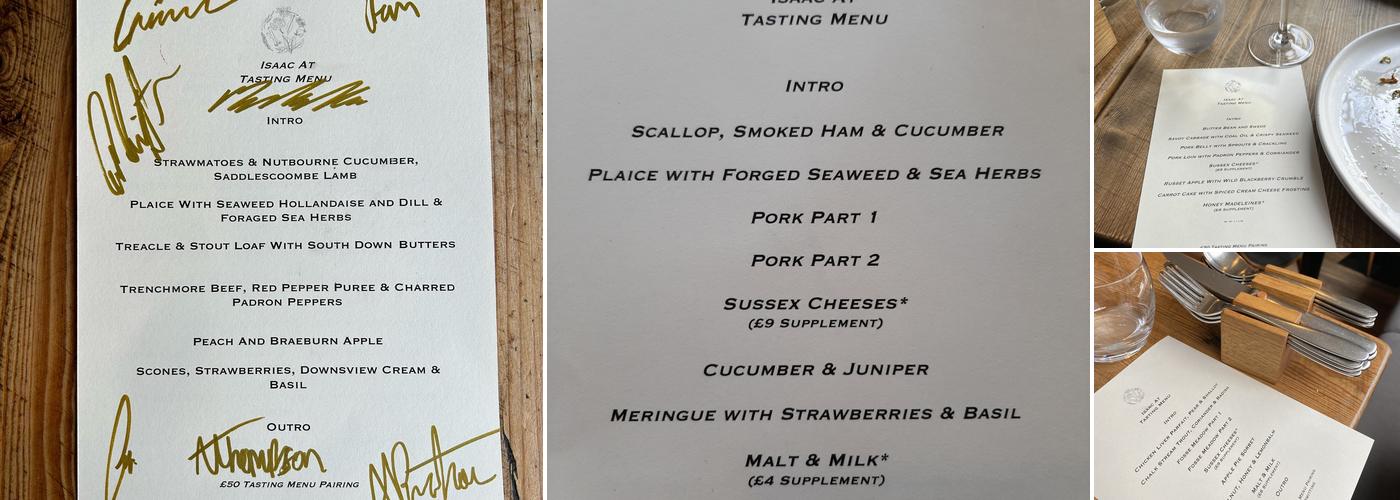 Isaac At
Tasting Menu
Intro
Strawmatoes & Nutbourne Cucumber,
Saddlescoombe Lamb
Plaice With Seaweed Hollandaise and Dill &
Foraged Sea Herbs
Treacle & Stout Loaf With South Down Butters
Trenchmore Beef, Red Pepper Puree & Charred
Padron Peppers
Peach And Braeburn Apple
Scones, Strawberries, Downsview Cream &
Basil
Outro
AThompson
£50 Tasting Menu Pairing
Isaac At
Tasting Menu
Intro
Scallop, Smoked Ham & Cucumber
Plaice with Forged Seaweed & Sea Herbs
Pork Part 1
Pork Part 2
Sussex Cheeses*
(£9 Supplement)
Cucumber & Juniper
Meringue with Strawberries & Basil
Malt & Milk*
(£4 Supplement)
Isaac At
Tasting Menu
Intro
Butter Bean and Swede
Savoy Cabbage with Coal Oil & Crispy Seaweed
Pork Belly with Sprouts & Crackling
Pork Loin with Padron Peppers & Corriander
Sussex Cheeses*
(£9 Supplement)
Russet Apple With Wild Blackberry Crumble
Carrot Cake with Spiced Cream Cheese Frosting
Honey Madeleines*
(£5 Supplement)
£50 Tasting Menu Pairing
Isaac At
Tasting Menu
Intro
Chicken Liver Parfait, Pear & Shallot
Chalk Stream Trout, Coriander & Radish
Fosse Meadow Part 1
Fosse Meadow Part 2
Sussex Cheeses*
(£9 Supplement)
Apple Pie Sorbet
Honey & Lemonbalm
Malt & Milk
Outro